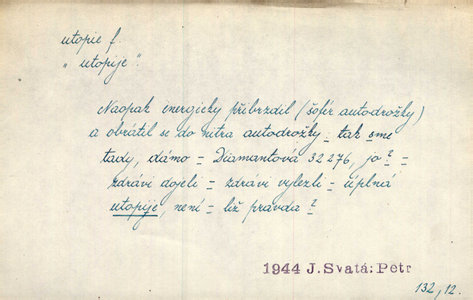 utopie f.
" utopije ".
Naopak energicky přibrzdil (šofér autodrožky)
a obrátil se do nitra autodrožky: tak sme
tady, dámo = Diamantová 32276, jo? =
zdrávi dojeli = zdrávi vylezli = úplná
utopije, není = liž pravda?
1944 J. Svatá: Petr
132, 12.